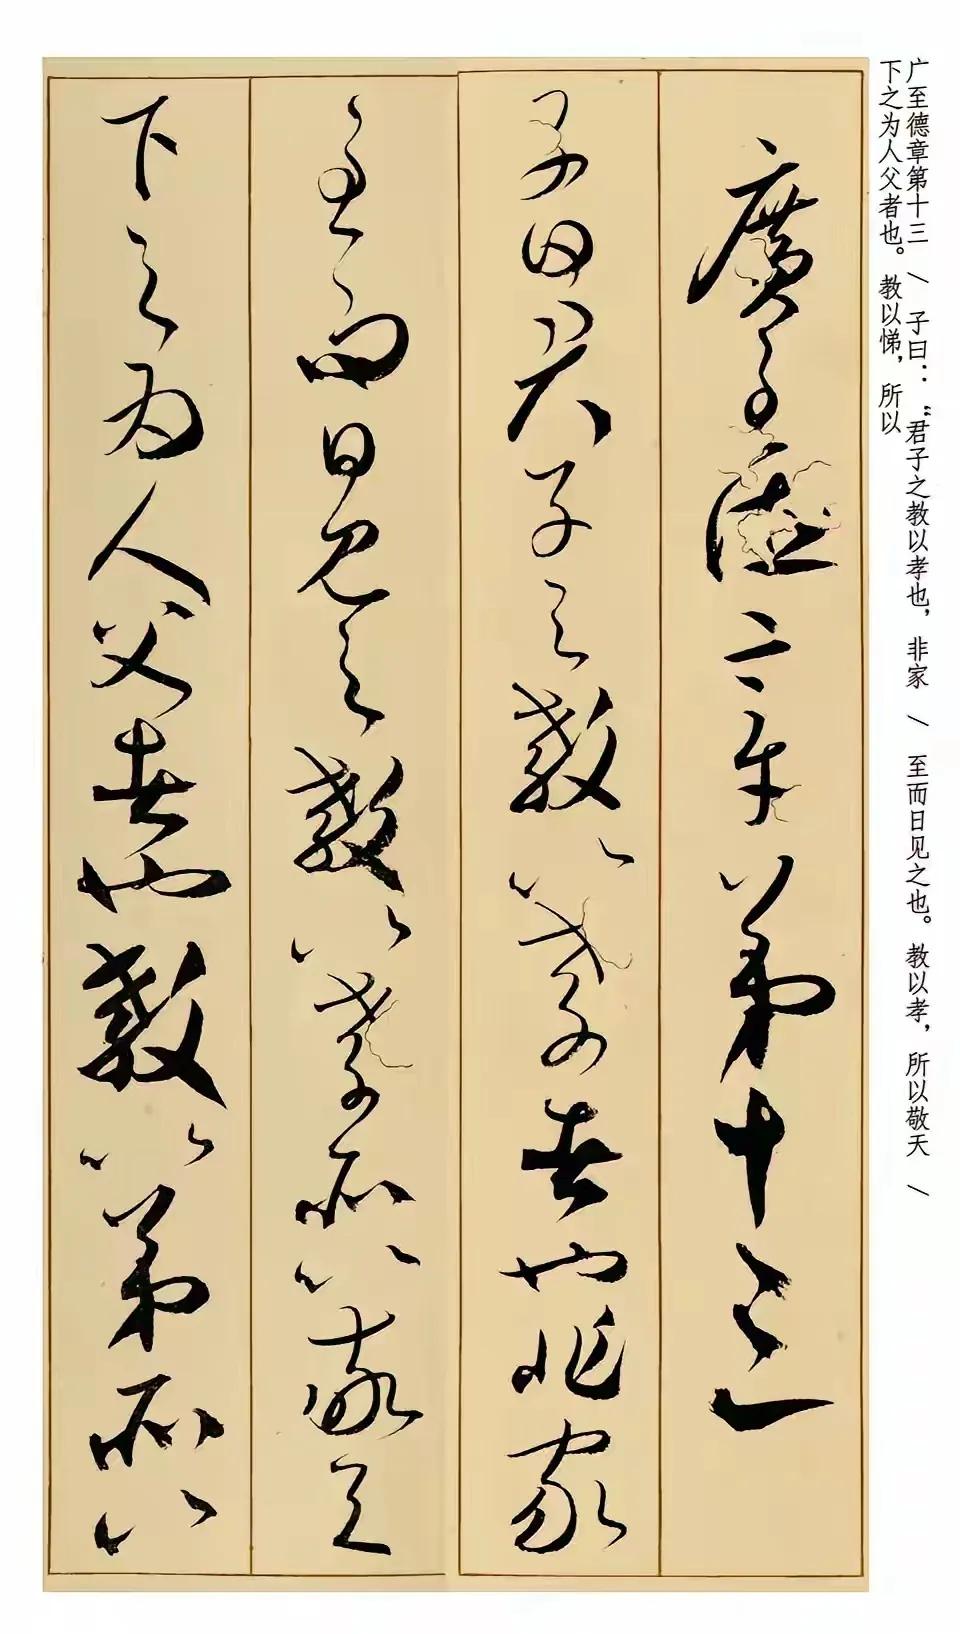 广至德章第十三 \ 子曰：“君子之教以孝也，非家 \ 至而日见之也。教以孝，所以敬天 \
下之为人父者也。教以悌，所以
廣至德章第十三
子曰君子之教以孝者也非家
至而日見之教以孝所以敬天
下之為人父者也教以弟所以